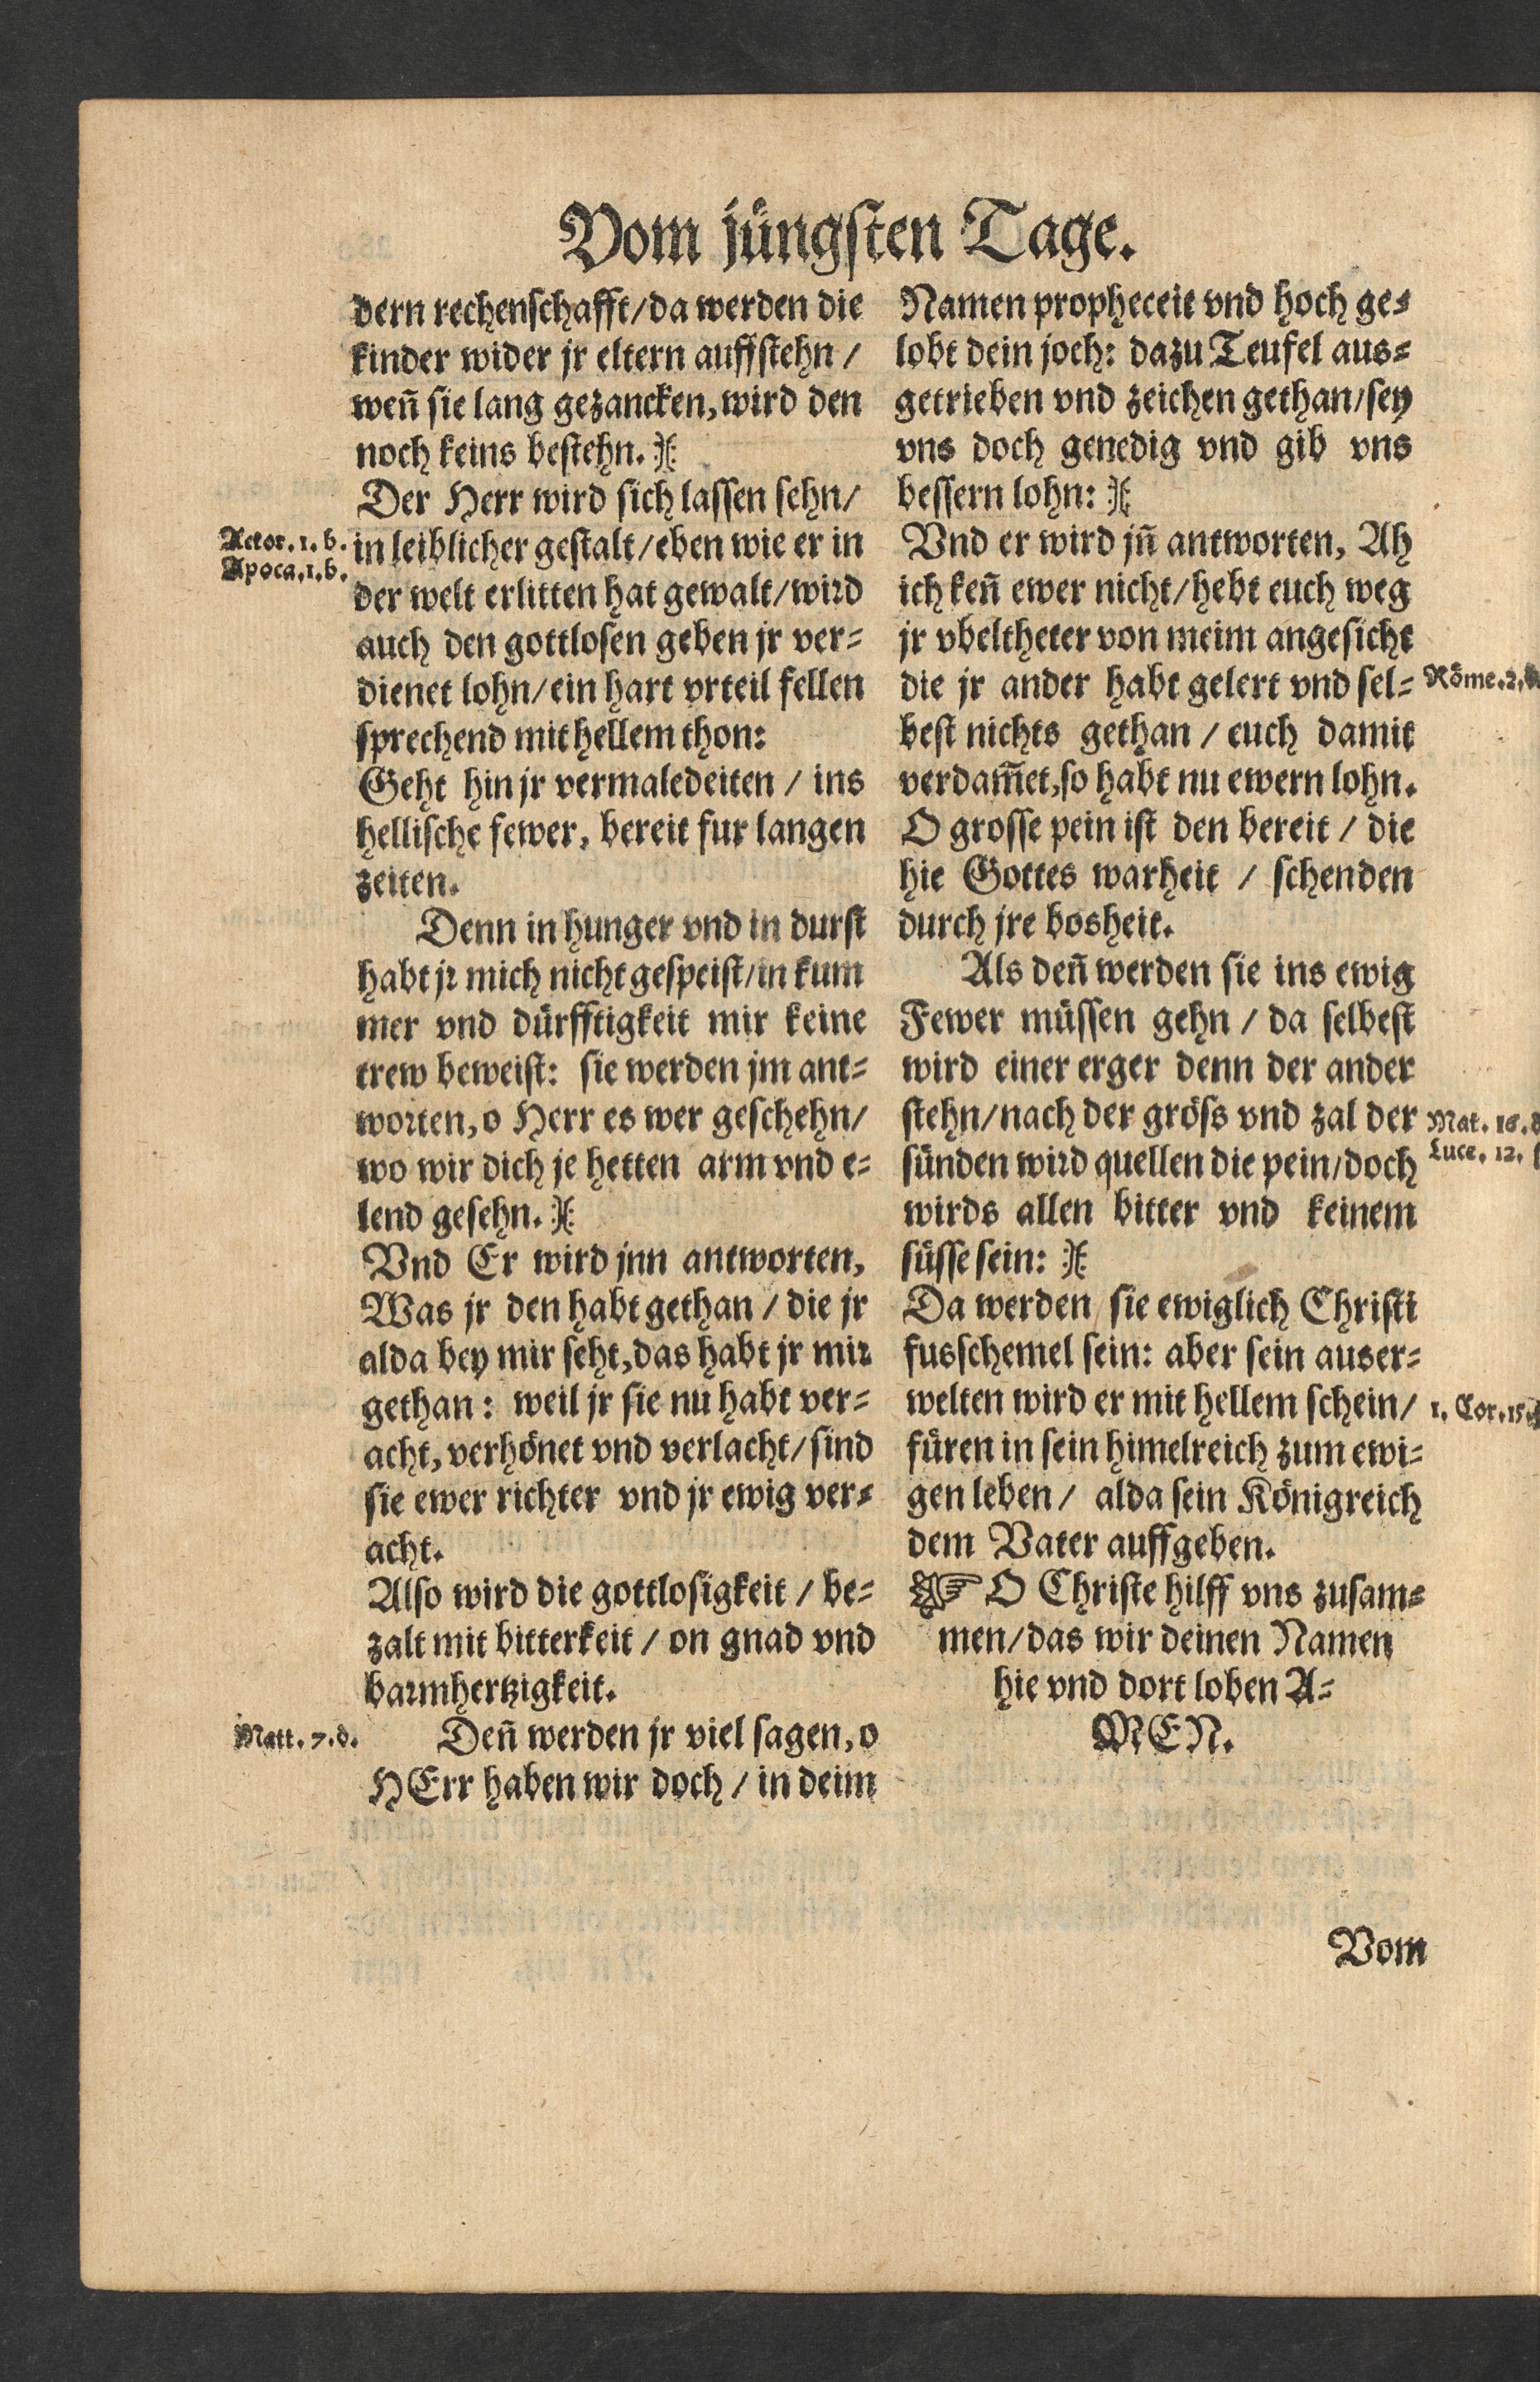 Vom jüngsten Tage.
dern rechenschafft/da werden die
kinder wider jr eltern auffstehn /
weñ sie lang gezancken, wird den
noch keins bestehn.
Der Herr wird sich lassen sehn/
Actor. 1. b.
Apoca. 1. b.
in leiblicher gestalt/eben wie er in
der welt erlitten hat gewalt/wird
auch den gottlosen geben jr ver=
dienet lohn/ein hart vrteil fellen
sprechend mit hellem thon:
Geht hin jr vermaledeiten / ins
hellische fewer, bereit fur langen
zeiten.
Denn in hunger vnd in durst
habt jr mich nicht gespeist/in kum
mer vnd dürfftigkeit mir keine
trew beweist: sie werden jm ant=
worten, o Herr es wer geschehn/
wo wir dich je hetten arm vnd e=
lend gesehn.
Vnd Er wird jnn antworten,
Was jr den habt gethan / die jr
alda bey mir seht, das habt jr mir
gethan: weil jr sie nu habt ver=
acht, verhönet vnd verlacht/sind
sie ewer richter vnd jr ewig ver=
acht.
Also wird die gottlosigkeit / be=
zalt mit bitterkeit / on gnad vnd
barmhertzigkeit.
Matt. 7. d.
Deñ werden jr viel sagen, o
HErr haben wir doch / in deim
Namen propheceit vnd hoch ge=
lobt dein joch: dazu Teufel aus=
getrieben vnd zeichen gethan/sey
vns doch genedig vnd gib vns
bessern lohn:
Vnd er wird jñ antworten, Ah
ich keñ ewer nicht/hebt euch weg
jr vbeltheter von meim angesicht
die jr ander habt gelert vnd sel=
Röme. 2.
best nichts gethan / euch damit
verdam̃et, so habt nu ewern lohn.
O grosse pein ist den bereit / die
hie Gottes warheit / schenden
durch jre bosheit.
Als deñ werden sie ins ewig
Fewer müssen gehn / da selbest
wird einer erger denn der ander
stehn/nach der gröss vnd zal der
Mat. 16.
Luce. 12.
sünden wird quellen die pein/doch
wirds allen bitter vnd keinem
süsse sein:
Da werden sie ewiglich Christi
fusschemel sein: aber sein auser=
welten wird er mit hellem schein/
1. Cor. 15.
füren in sein himelreich zum ewi=
gen leben / alda sein Königreich
dem Vater auffgeben.
☞ O Christe hilff vns zusam=
men/das wir deinen Namen
hie vnd dort loben A=
MEN.
Vom